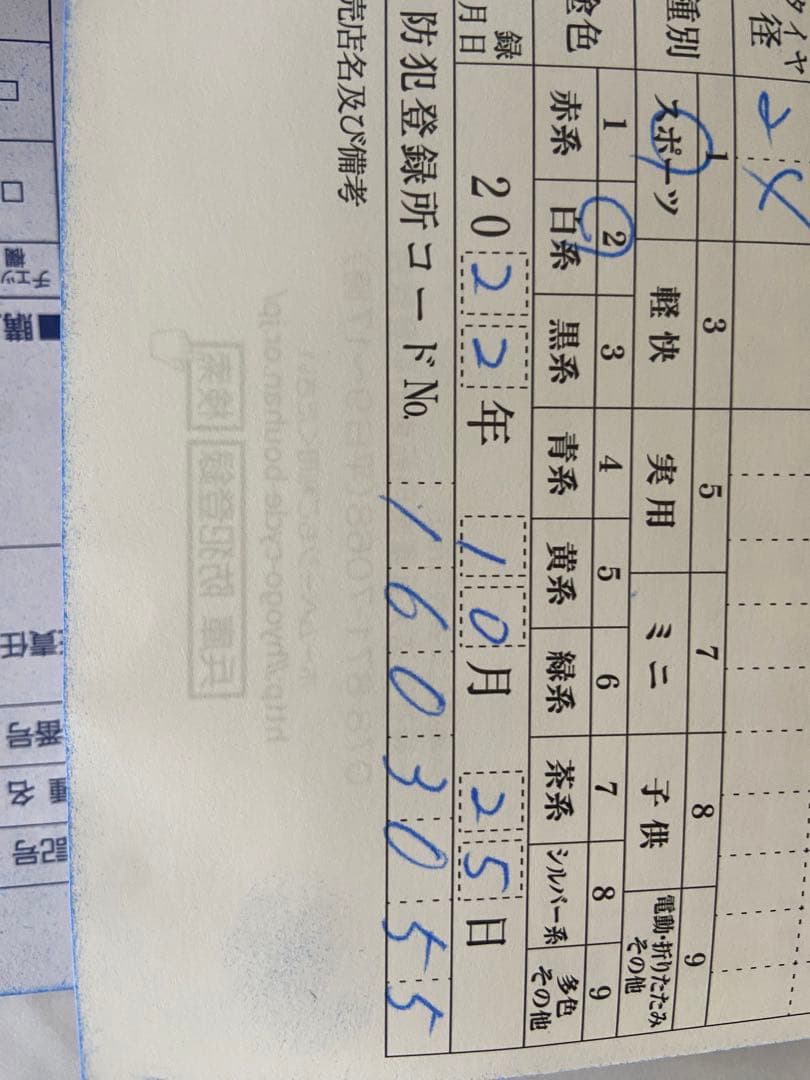 タイヤ径 24
種別 1 スポーツ 3 軽快 5 実用 7 ミニ 8 子供 9 電動・折りたたみ その他
塗色 1 赤系 2 白系 3 黒系 4 青系 5 黄系 6 緑系 7 茶系 8 シルバー系 9 多色 その他
録月日 2022年10月25日
防犯登録所コードNo. 1603055
売店名及び備考
チェック欄
■購
責任
番号
種名
記号